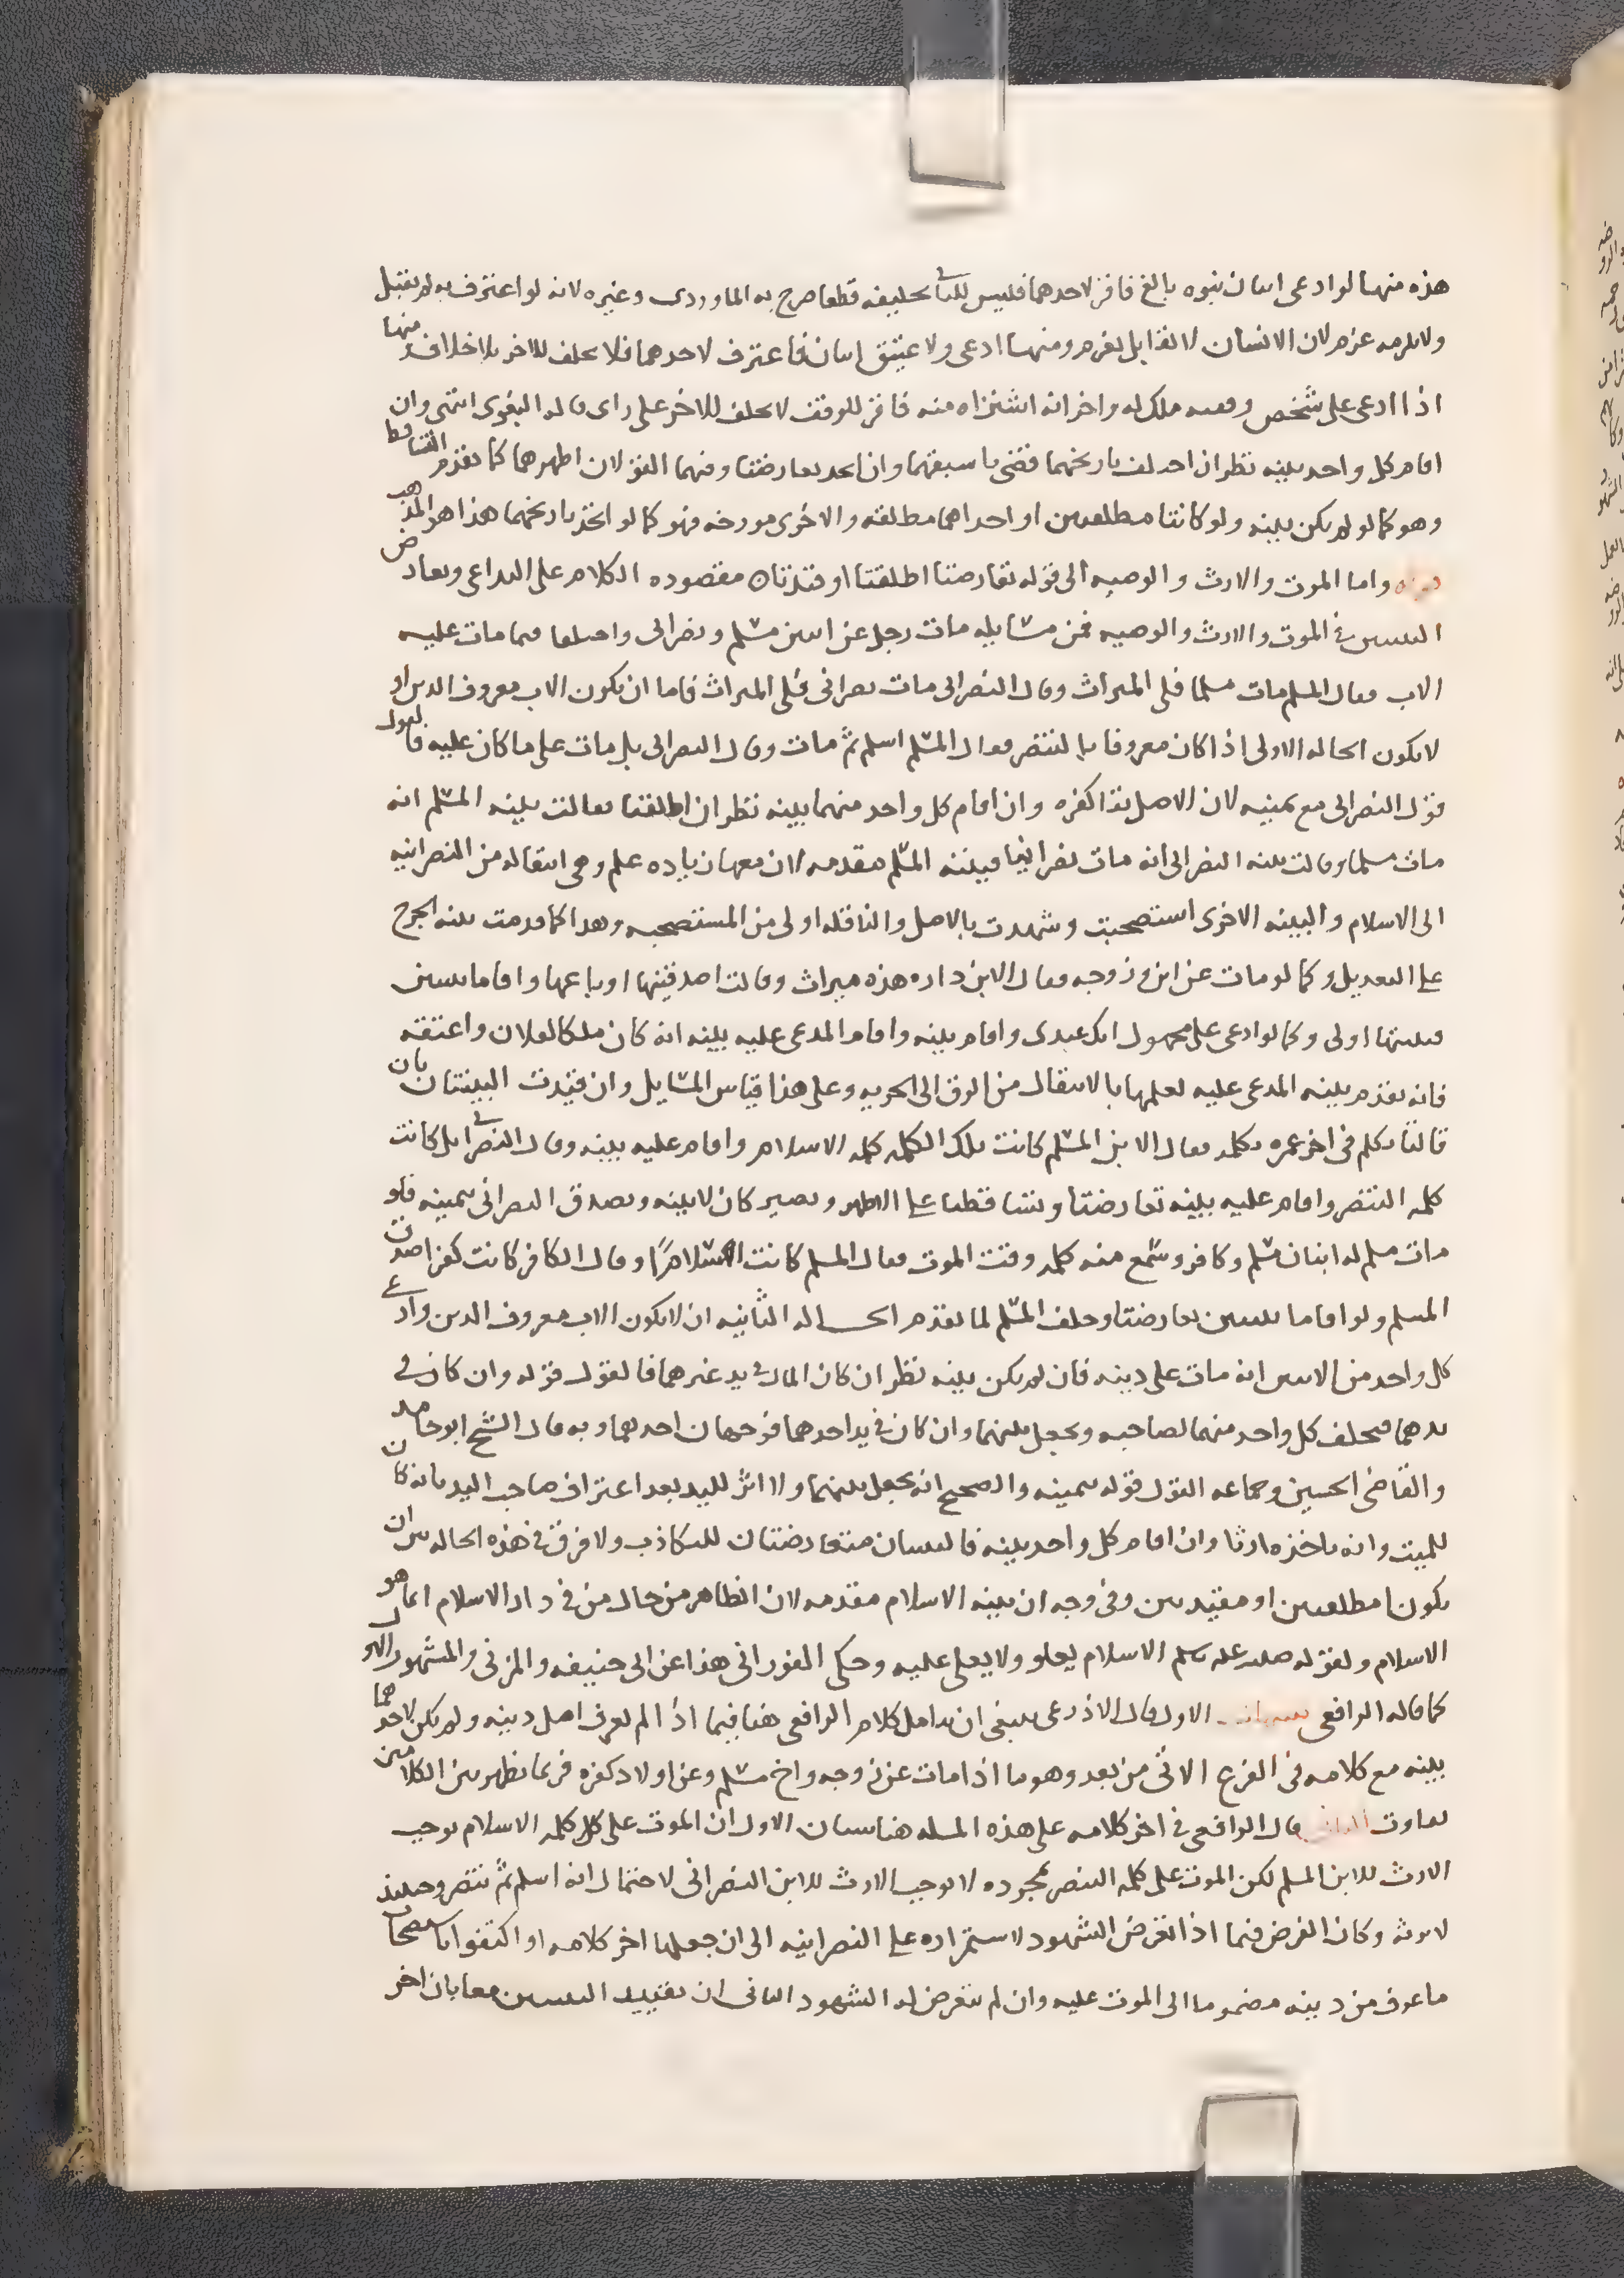 هذه منها لو ادعى اثنان بنوه بالغ فاقر لاحدهما فليس للثانى تحليفه قطعا صرح به الماوردى وغيره لانه لو اعترف به لم يقبل
ولا يلزمه غرم لان الانسان لا يقابل بغرم ومنها ادعى ولا عتيق اثنان فاعترف لاحدهما فلا يحلف للاخر بلا خلاف ومنها
اذا ادعى على شخص وقفيه ملك له واخر انه اشتراه منه فاقر للوقف لا يحلف للاخر على راى قاله البغوى انتهى وان
اقام كل واحد بينه نظر ان اختلف تاريخهما قضى باسبقهما وان اتحد تعارضتا وفيهما القولان اظهرهما كما تقدم التساقط
وهو كما لو لم يكن بينه ولو كانتا مطلقتين او احداهما مطلقه والاخرى مورخه فهو كما لو اتحد تاريخهما هذا هو المذهب
قوله واما الموت والارث والوصيه الى قوله تعارضتا اطلقتا او قيدتا مقصوده الكلام على التداعى وتعارض
البينتين فى الموت والارث والوصيه فمن مسايله مات رجل عن ابنين مسلم ونصرانى واختلفا فيما مات عليه
الاب فقال المسلم مات مسلما فلى الميراث وقال النصرانى مات نصرانى فلى الميراث فاما ان يكون الاب معروف الدين او
لا يكون الحاله الاولى اذا كان معروفا بالتنصر فقال المسلم اسلم ثم مات وقال النصرانى بل مات على ما كان عليه فالقول
قول النصرانى مع يمينه لان الاصل بقا كفره وان اقام كل واحد منهما بينه نظر ان اطلقتا فقالت بينه المسلم انه
مات مسلما وقالت بينه النصرانى انه مات نصرانيا فبينه المسلم مقدمه لان معها زياده علم وهى انتقاله من النصرانيه
الى الاسلام والبينه الاخرى استصحبت وشهدت بالاصل والناقله اولى من المستصحبه وهذا كما قدمت بينه الجرح
على التعديل وكما لو مات عن ابن وزوجه فقال الابن داره هذه ميراث وقالت اصدقنيها او باعها واقاما بينتين
فبينتها اولى وكما لو ادعى على مجهول انك عبدى واقام بينه واقام المدعى عليه بينه انه كان ملكا لفلان واعتقه
فانه يقدم بينه المدعى عليه لعلمها بالانتقال من الرق الى الحريه وعلى هذا قياس المسايل وان قيدت البينتان بان
قالتا تكلم فى اخر عمره بكلمه فقال الابن المسلم كانت تلك الكلمه كلمه الاسلام واقام عليه بينه وقال النصرانى بل كانت
كلمه التنصر واقام عليه بينه تعارضتا وتساقطتا على الاظهر ويصير كان لا بينه ويصدق النصرانى بيمينه فلو
مات مسلم له ابنان مسلم وكافر وسمع منه كلمه وقت الموت فقال المسلم كانت اسلاما وقال الكافر كانت كفرا صدق
المسلم ولو اقاما بينتين تعارضتا وحلف المسلم لما تقدم الحاله الثانيه ان لا يكون الاب معروف الدين وادعى
كل واحد من الابنين انه مات على دينه فان لم يكن بينه نظر ان كان المال فى يد غيرهما فالقول قوله وان كان فى
يدهما فيحلف كل واحد منهما لصاحبه ويجعل بينهما وان كان فى يد احدهما فوجهان احدهما وبه قال الشيخ ابو حامد
والقاضى الحسين وجماعه القول قوله بيمينه والصحيح انه يجعل بينهما ولا اثر لليد بعد اعتراف صاحب اليد بانه كان
للميت وانه ياخذه ارثا وان اقام كل واحد بينه فالبينتان متعارضتان للتكاذب ولا فرق فى هذه الحاله بين ان
يكونا مطلقتين او مقيدتين وفى وجه ان بينه الاسلام مقدمه لان الظاهر من حال من فى دار الاسلام انما هو
الاسلام ولقوله صلى الله عليه وسلم الاسلام يعلو ولا يعلى عليه وحكى الفورانى هذا عن ابى حنيفه والمزنى والمشهور الاول
كما قاله الرافعى تنبيهات الاول قال الاذرعى ينبغى ان يتامل كلام الرافعى هنا فيما اذا لم يعرف اصل دينه ولم يكن لاحدهما
بينه مع كلامه فى الفرع الاتى من بعد وهو ما اذا مات عن زوجه واخ مسلم وعن اولاد كفره فربما يظهر بين الكلامين
تفاوت الثانى قال الرافعى فى اخر كلامه على هذه المسله هنا شيان الاول ان الموت على كلمه الاسلام يوجب
الارث للابن المسلم لكن الموت على كلمه التنصر بمجرده لا يوجب الارث للابن النصرانى لاحتمال انه اسلم ثم تنصر وحينئذ
لا يورث وكان الغرض فيما اذا تعرض الشهود لاستمراره على النصرانيه الى ان جعلها اخر كلامه او اكتفوا باستصحاب
ما عرف من دينه مضموما الى الموت عليه وان لم يتعرض له الشهود الثانى ان تقييد البينتين معا بان اخر